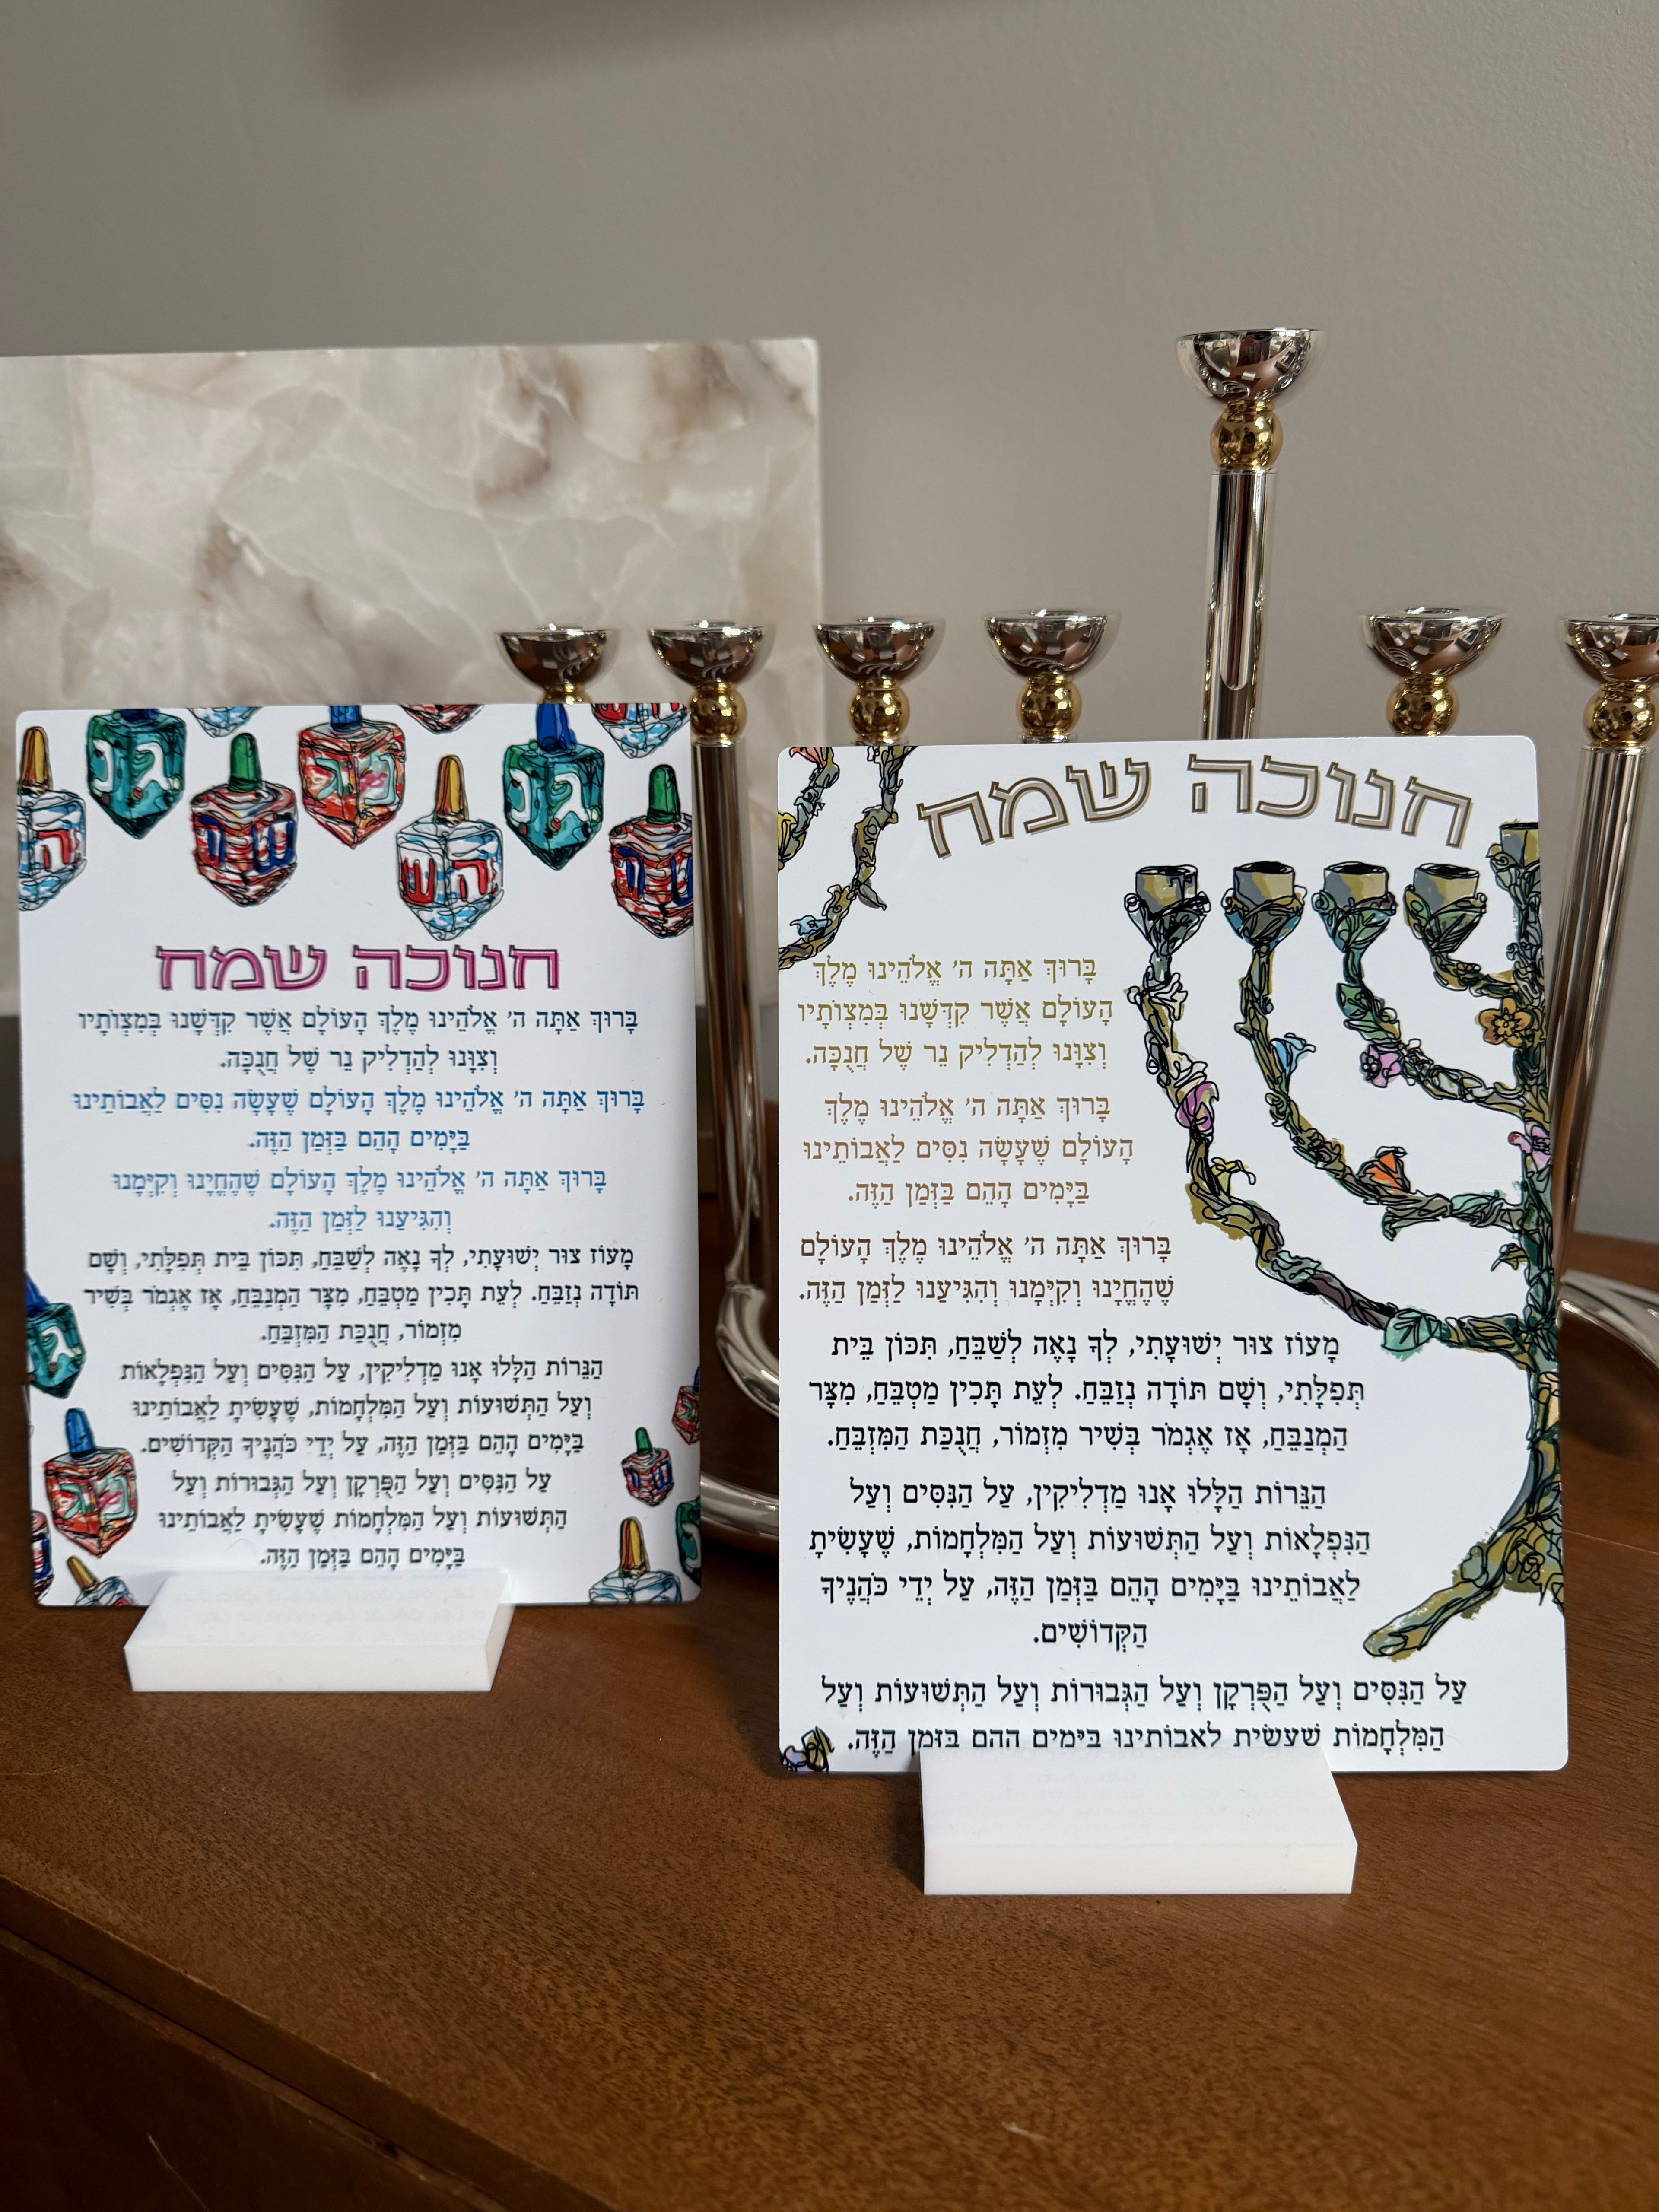 ה
ג נ
ש
ג נ
ה ש
ג נ
חנוכה שמח
בָּרוּךְ אַתָּה ה' אֱלֹהֵינוּ מֶלֶךְ הָעוֹלָם אֲשֶׁר קִדְּשָׁנוּ בְּמִצְוֹתָיו
וְצִוָּנוּ לְהַדְלִיק נֵר שֶׁל חֲנֻכָּה.
בָּרוּךְ אַתָּה ה' אֱלֹהֵינוּ מֶלֶךְ הָעוֹלָם שֶׁעָשָׂה נִסִּים לַאֲבוֹתֵינוּ
בַּיָּמִים הָהֵם בַּזְּמַן הַזֶּה.
בָּרוּךְ אַתָּה ה' אֱלֹהֵינוּ מֶלֶךְ הָעוֹלָם שֶׁהֶחֱיָנוּ וְקִיְּמָנוּ
וְהִגִּיעַנוּ לַזְּמַן הַזֶּה.
מָעוֹז צוּר יְשׁוּעָתִי, לְךָ נָאֶה לְשַׁבֵּחַ, תִּכּוֹן בֵּית תְּפִלָּתִי, וְשָׁם
תּוֹדָה נְזַבֵּחַ. לְעֵת תָּכִין מַטְבֵּחַ, מִצָּר הַמְנַבֵּחַ, אָז אֶגְמֹר בְּשִׁיר
מִזְמוֹר, חֲנֻכַּת הַמִּזְבֵּחַ.
הַנֵּרוֹת הַלָּלוּ אָנוּ מַדְלִיקִין, עַל הַנִּסִּים וְעַל הַנִּפְלָאוֹת
וְעַל הַתְּשׁוּעוֹת וְעַל הַמִּלְחָמוֹת, שֶׁעָשִׂיתָ לַאֲבוֹתֵינוּ
בַּיָּמִים הָהֵם בַּזְּמַן הַזֶּה, עַל יְדֵי כֹּהֲנֶיךָ הַקְּדוֹשִׁים.
עַל הַנִּסִּים וְעַל הַפֻּרְקָן וְעַל הַגְּבוּרוֹת וְעַל
הַתְּשׁוּעוֹת וְעַל הַמִּלְחָמוֹת שֶׁעָשִׂיתָ לַאֲבוֹתֵינוּ
בַּיָּמִים הָהֵם בַּזְּמַן הַזֶּה.
חנוכה שמח
בָּרוּךְ אַתָּה ה' אֱלֹהֵינוּ מֶלֶךְ
הָעוֹלָם אֲשֶׁר קִדְּשָׁנוּ בְּמִצְוֹתָיו
וְצִוָּנוּ לְהַדְלִיק נֵר שֶׁל חֲנֻכָּה.
בָּרוּךְ אַתָּה ה' אֱלֹהֵינוּ מֶלֶךְ
הָעוֹלָם שֶׁעָשָׂה נִסִּים לַאֲבוֹתֵינוּ
בַּיָּמִים הָהֵם בַּזְּמַן הַזֶּה.
בָּרוּךְ אַתָּה ה' אֱלֹהֵינוּ מֶלֶךְ הָעוֹלָם
שֶׁהֶחֱיָנוּ וְקִיְּמָנוּ וְהִגִּיעַנוּ לַזְּמַן הַזֶּה.
מָעוֹז צוּר יְשׁוּעָתִי, לְךָ נָאֶה לְשַׁבֵּחַ, תִּכּוֹן בֵּית
תְּפִלָּתִי, וְשָׁם תּוֹדָה נְזַבֵּחַ. לְעֵת תָּכִין מַטְבֵּחַ, מִצָּר
הַמְנַבֵּחַ, אָז אֶגְמֹר בְּשִׁיר מִזְמוֹר, חֲנֻכַּת הַמִּזְבֵּחַ.
הַנֵּרוֹת הַלָּלוּ אָנוּ מַדְלִיקִין, עַל הַנִּסִּים וְעַל
הַנִּפְלָאוֹת וְעַל הַתְּשׁוּעוֹת וְעַל הַמִּלְחָמוֹת, שֶׁעָשִׂיתָ
לַאֲבוֹתֵינוּ בַּיָּמִים הָהֵם בַּזְּמַן הַזֶּה, עַל יְדֵי כֹּהֲנֶיךָ
הַקְּדוֹשִׁים.
עַל הַנִּסִּים וְעַל הַפֻּרְקָן וְעַל הַגְּבוּרוֹת וְעַל הַתְּשׁוּעוֹת וְעַל
הַמִּלְחָמוֹת שֶׁעָשִׂיתָ לַאֲבוֹתֵינוּ בַּיָּמִים הָהֵם בַּזְּמַן הַזֶּה.